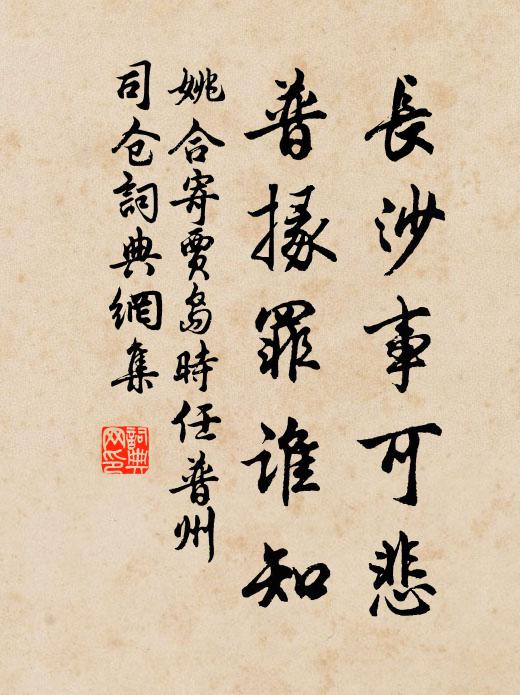 長沙事可悲
普掾罪誰知
姚合寄賈島時任普州
司仓詞典網集
詞典
网印